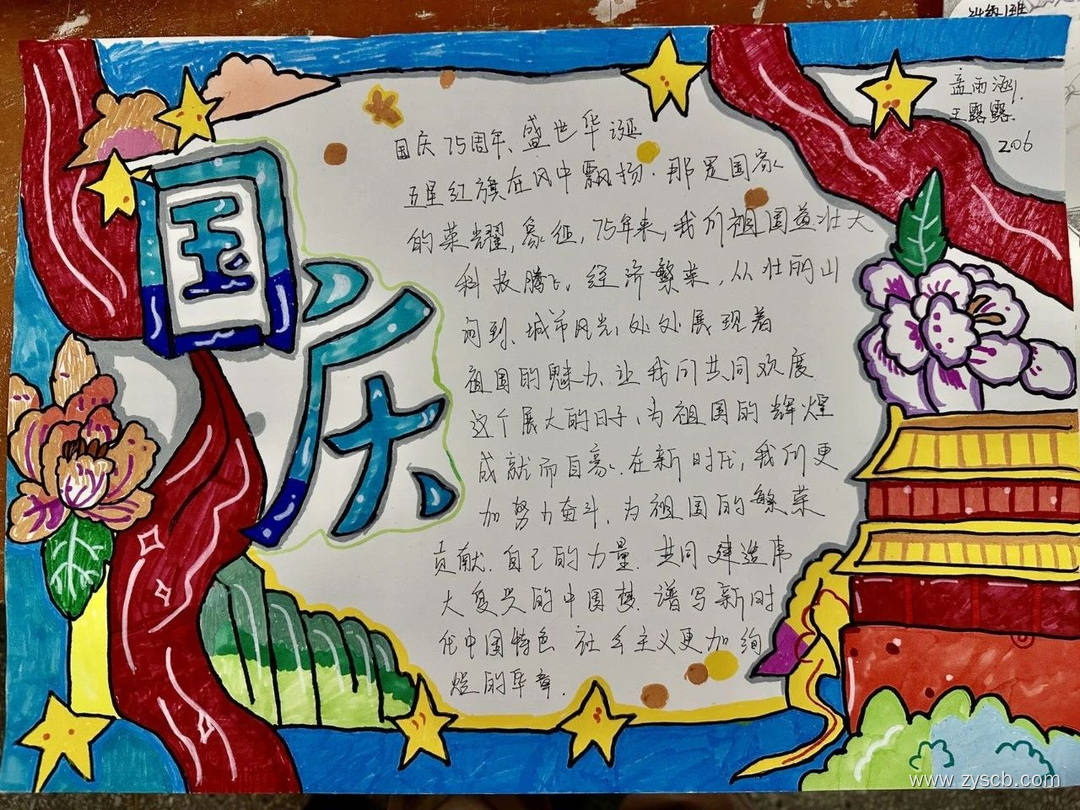 孟雨涵
王露露
206
国庆
国庆75周年、盛世华诞
五星红旗在风中飘扬.那是国家
的荣耀,象征,75年来,我们祖国益壮大
科技腾飞,经济繁荣,从壮丽山
河到、城市风光,处处展现着
祖国的魅力、让我们共同欢度
这个展大的日子、为祖国的辉煌
成就而自豪、在新时代,我们更
加努力奋斗、为祖国的繁荣
贡献.自己的力量.共同建造伟
大复兴的中国梦.谱写新时
代中国特色 社会主义更加绚
烂的华章.
www.zyscb.com